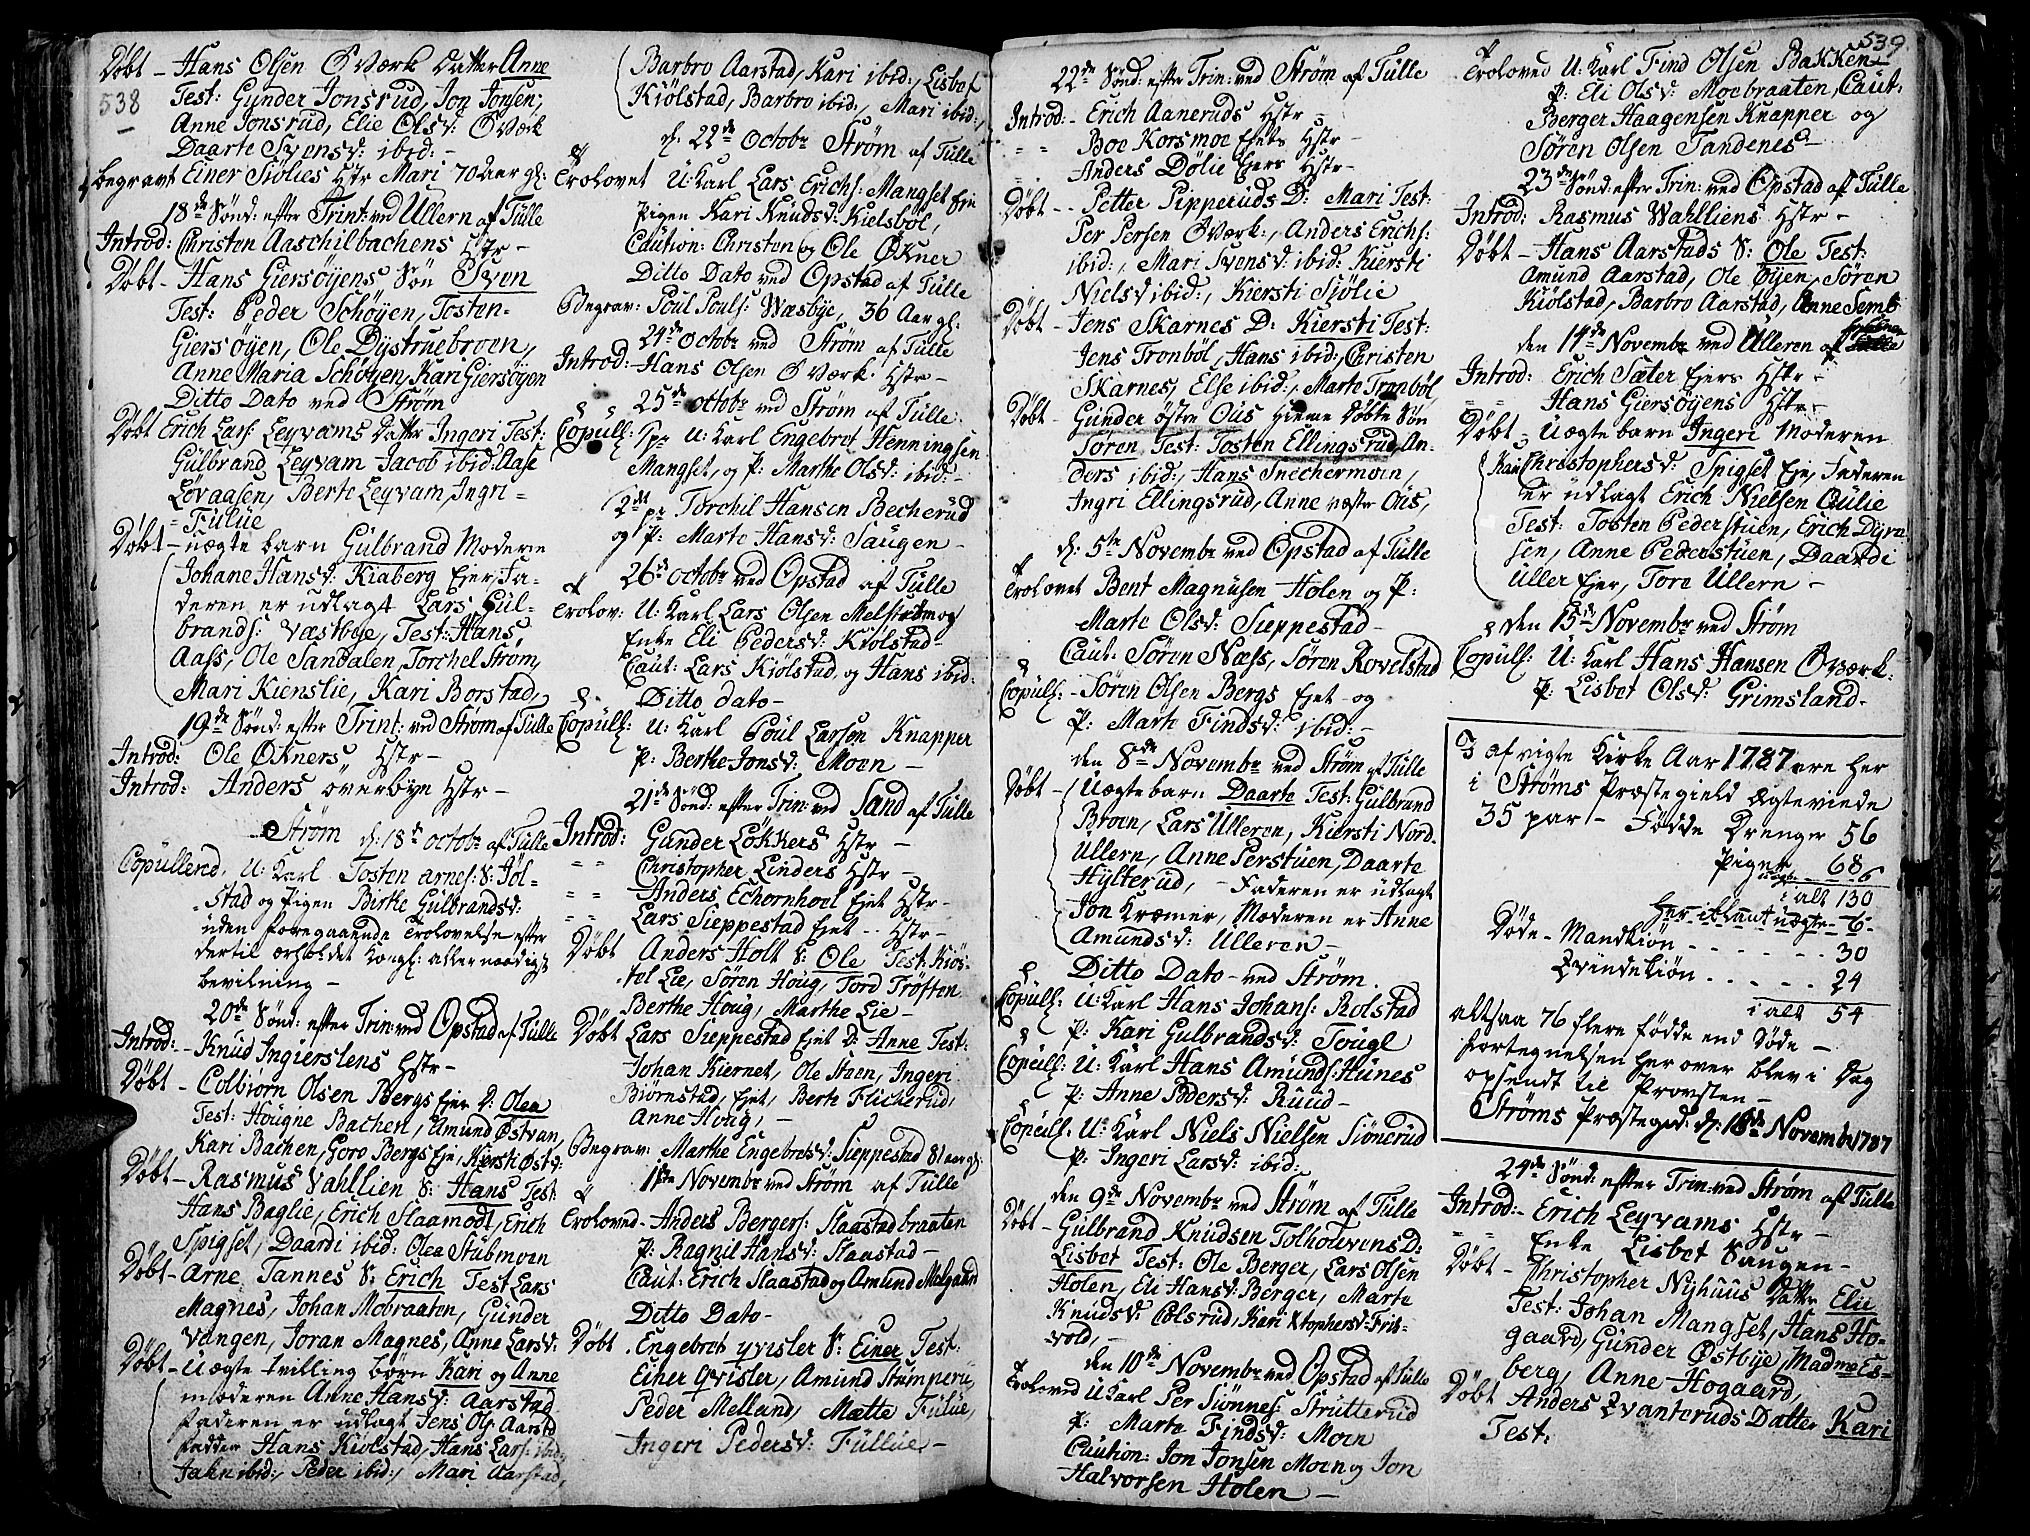 538
Döbt - Hans Olsen Ö Værk Datter Anne
Test: Gunder Jonsrud, Jon Jonsen,
Anne Jonsrud, Elie Olsd: Ö Værk
Daarte Svensd: ibid: -
begravt Einer Siölies Hstr Mari 70 Aar gl:
18de Sönd: efter Trint: ved Ullern af Tülle
Introd: Christen Aaschilbachens Hstr -
Döbt - Hans Giersöyens Sön Sven
Test: Peder Schöyen, Tosten
Giersöyen, Ole Dystruebroen,
Anne Maria Schöyen, Kari Giersöyen
Ditto Dato ved Ström
Döbt Erich Lars: Leyvams Datter Ingeri Test:
Gülbrand Leyvam Jacob ibid: Aase
Lövaasen, Berte Leyvam, Ingri
Fulüe
Döbt - uægte barn Gülbrand Moderen
Johane Hansd: Kiaberg Ejer, Fa-
deren er udlagt Lars Gül-
brands: Væstbye, Test: Hans
Aass, Ole Sandalen, Torchel Ström,
Mari Kienslie, Kari Borstad,
19de Sönd: efter Trint: ved Ström af Tülle
Introd: Ole Økners Hstr -
Introd: Anders överbyn Hstr -
Ström d: 18de octobr af Tülle
Copüllered. U: Karl Tosten arnes: S: Jöl-
stad og Pigen Berthe Gülbrandsd:
uden foregaaende Trolovelse efter
dertil erholdet Kongl: allernaadigst
bevilning -
20de Sönd: efter Trin: ved Opstad af Tülle
Introd: - Knüd Ingierslens Hstr -
Döbt - Colbiörn Olsen Bergs Ejer D: Olea
Test: Hougne Bachen, Amund Østvan,
Kari Bachen, Goro Bergs Eje, Kiersti Østg:
Döbt - Rasmus Vahllien S: Hans Test:
Hans Baglie, Erich Slaamodt, Erich
Spigset, Daardi ibid: Olea Stübmoen
Döbt - Arne Tannes S: Erich Test Lars
Magnes, Johan Mobraaten, Günder
Vangen, Joran Magnes, Anne Larsd:
Döbt - Uægte tvilling börn Kari og Anne
moderen Anne Hansd: Aarstad
faderen er udlagt Jens Ols: Aarstad
fadder Hans Kiölstad, Hans Lars: ibid:,
Jahn ibid:, Peder ibid:, Mari Aarstad,
Barbro Aarstad, Kari ibid:, Lisbet
Kiölstad, Barbro ibid:, Mari ibid:,
d. 22de Octobr Ström af Tülle
Trolovet U: Karl Lars Erichs: Mangset
Pigen Kari Knudsd: Kielsböl,
Caution: Christen og Ole Økner
Ditto Dato ved Opstad af Tülle
Begrav: Poul Pouls: Wæsbye, 36 Aar gl:
24de Octobr ved Ström af Tülle
Introd: - Hans Olsen Ö Værk Hstr -
25de octobr ved Ström af Tülle
Copüll: 1pr U: Karl Engebret Henningsen
Mangset, og P: Marthe Olsd: ibid: -
2det pr Torchil Hansen Becherüd
og P: Marte Hansd: Saugen -
26de octobr ved Opstad af Tülle
Trolov: U: Karl Lars Olsen Melström og
Enke Eli Pedersd: Kiölstad -
Caut: Lars Kiölstad og Hans ibid:
Ditto dato -
Copüll: U: Karl Poül Larsen Knapper
P: Berthe Jonsd: Moen -
21de Sönd: efter Trin: ved Sand af Tülle
Introd: Günder Lökkers Hstr -
- - Christopher Linders Hstr -
- - Anders Echornhoel Ejet Hstr -
- - Lars Sieppestad Ejet - Hstr -
Döbt Anders Holt S: Ole Test: Kiös-
tel Lie, Sören Höug, Tord Tröften
Berthe Höug, Marthe Lie -
Döbt Lars Sieppestad Ejet D: Anne Test:
Johan Kiernet, Ole Staen, Ingeri
Biörnstad, Ejet, Berte Flicherud,
Anne Houg, -
Begrav: Marthe Engebretsd: Sieppestad 81 aar gl:
1ste Novembr ved Ström af Tülle
Troloved - Anders Bergers: Slaastadbraaten
P: Ragnil Hansd: Slaastad -
Caut: Erich Slaastad og Amund Melgaard
Ditto Dato -
Döbt Engebret qvisler S: Einer Test:
Einer Qvisler, Amund Stumperü,
Peder Mellund, Mætte Fülüe,
Ingeri Pedersd: Füllüe -
539.
22de Sönd: efter Trin: ved Ström af Tülle
Introd: - Erich Aaneruds Hstr -
- - Boe Korsmoe Ejets Hstr -
- - Anders Dölie Ejers Hstr -
Döbt - - Petter Pipperuds D: Mari Test:
Per Persen Ö Værk:, Anders Erichs:
ibid:, Mari Svensd: ibid: Kiersti
Nielsd ibid:, Kiersti Siölie
Döbt - Jens Skarnes D: Kiersti Test:
Jens Tronböl, Hans ibid:, Christen
Skarnes, Else ibid:, Marte Tronböl,
Döbt - Gunder östre Ous hieme döbte Sön
Sören Test: Tosten Ellingsrud, An-
ders ibid:, Hans Snechermoen,
Ingri Ellingsrüd, Anne væstre Ous,
d: 5te Novembr ved Opstad af Tülle
Trolovet Bent Magnüsen Holen og P:
Marte Olsd: Sieppestad -
Caut: Sören Næss, Sören Rovelstad
Copüll: - Sören Olsen Bergs Ejet og
P: Marte Findsd: ibid: -
den 8de Novembr ved Ström af Tülle
Döbt - Uægte barn Daarte Test: Gülbrand
Broen, Lars Ulleren, Kiersti Nord-
Ullern, Anne Perstüen, Daarte
Hylterüd, - Faderen er udlagt
Jon Kræmer, Moderen er Anne
Amundsd: Ulleren -
Ditto Dato - ved Ström.
Copüll: U: Karl Hans Johans: Rolstad
P: Kari Gulbrandsd: Tougl
Copüll: U: Karl Hans Amünds: Hünes
P: Anne Pedersd: Rüüd -
Copüll: U: Karl Niels Nielsen Siönerüd
P: Ingeri Larsd: ibid:
den 9de Novembr ved Ström af Tülle
Döbt - Gülbrand Knüdsen Tolholevens D:
Lisbet Test: Ole Berger, Lars Olsen
Holen, Eli Hansd: Berger, Marte
Knudsd: Colsrud, Kari Xtophersd: Frits-
vold, -
den 10de Novembr ved Opstad af Tülle
Troloved U Karl Per Siönnes: Strütterüd
P: Marte Findsd: Moen
Caution: Jon Jonsen Moen og Jon
Halvorsen Holen -
Troloved U: Karl Find Olsen Bakken
P: Eli Olsd: Moebraaten, Caut:
Berger Haagensen Knapper og
Sören Olsen Tandenes -
23de Sönd: efter Trin: ved Opstad af Tülle
Introd: Rasmus Wahlliens Hstr -
Döbt - Hans Aarstads S: Ole Test:
Amund Aarstad, Ole Öyen, Sören
Kiölstad, Barbro Aarstad, Anne Semb
den 14de Novembr ved Ulleren af
Introd: Erich Sæter Ejers Hstr -
- - Hans Giersöyens Hstr -
Döbt Uægte barn Ingeri Moderen
Kari Christophersd: Spigset Eje, Faderen
er udlagt Erich Nielsen Aulie
Test: Tosten Pederstüen, Erich Dyra
sen, Anne Pederstüen, Daardi
Uller Ejer, Tore Ullern -
den 15de Novembr ved Ström
Copüll: U: Karl Hans Hansen Ö Værk:
P: Lisbet Olsd: Grimsland -
I afvigte Kirke Aar 1787 ere her
i Ströms Præstegield Ægteviede
35 par - Födde Drenge 56
Piger 68
uægte - - 6
i alt 130
Her iblant uægte 6 -
Döde - Mandkiön - - - - - - 30
Qvindekiön - - - - - 24
i alt 54
altsaa 76 flere födde end Döde -
fortegnelsen her over blev i Dag
opsendt til Provsten -
Ströms Præstegrd: d: 18de Novembr 1787
24de Sönd: efter Trin: ved Ström af Tülle
Introd: - Erich Leyvams Hstr -
- - Enke Lisbet Saugen -
Döbt - Christopher Nyhuus Datter Elie
Test: Johan Mangset, Hans Ho-
gaard, Günder Østbye, Madme Es-
berg, Anne Hogaard,
Döbt Anders Qvanteruds Datter Kari
Test: